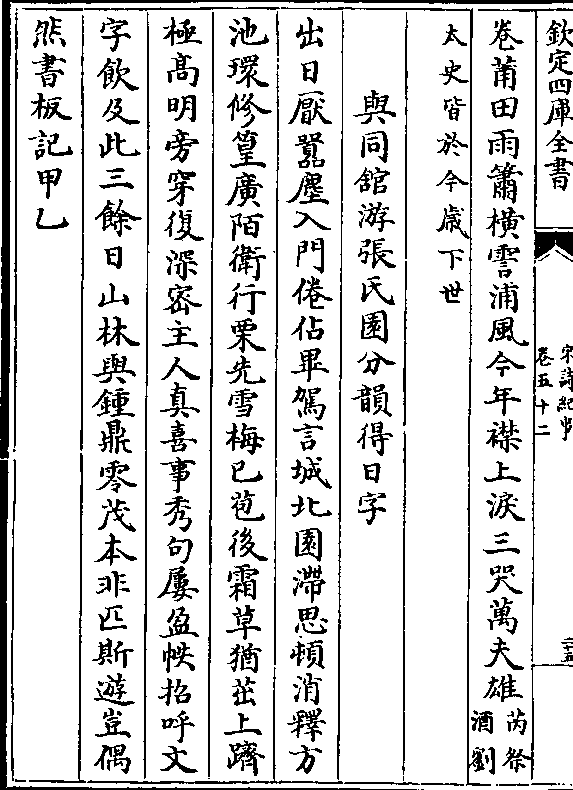 欽定四庫全書
宋詩紀事
卷五十二
卷莆田雨簫橫霅浦風今年襟上淚三哭萬夫雄芮祭
酒劉
太史皆於今歲下世
與同舘游張氏園分韻得日字
出日厭囂塵入門倦佔畢駕言城北園滯思頓消釋方
池環修篁廣陌衛行栗先雪梅已苞後霜草猶茁上躋
極髙明旁穿復深密主人真喜事秀句屢盈帙招呼文
字飲及此三餘日山林與鍾鼎零茂本非匹斯遊豈偶
然書板記甲乙